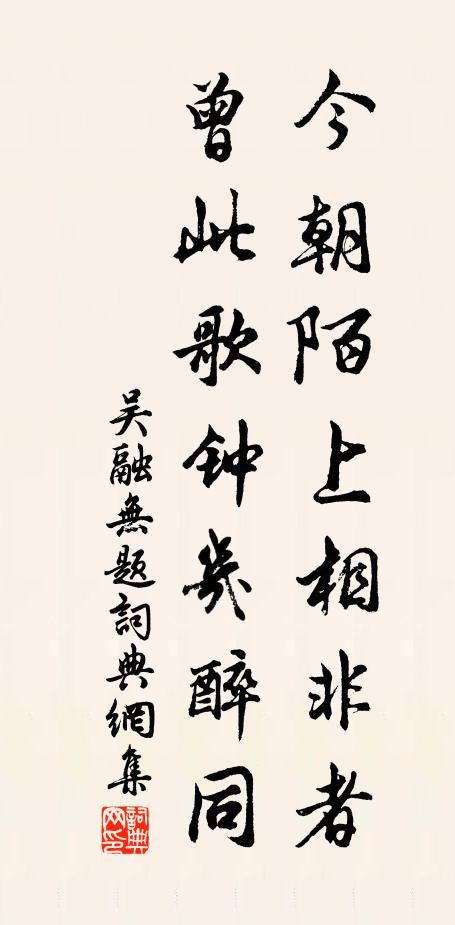 今朝陌上相非者
曾此歌钟几醉同
吴融無题詞典網集
詞典网印